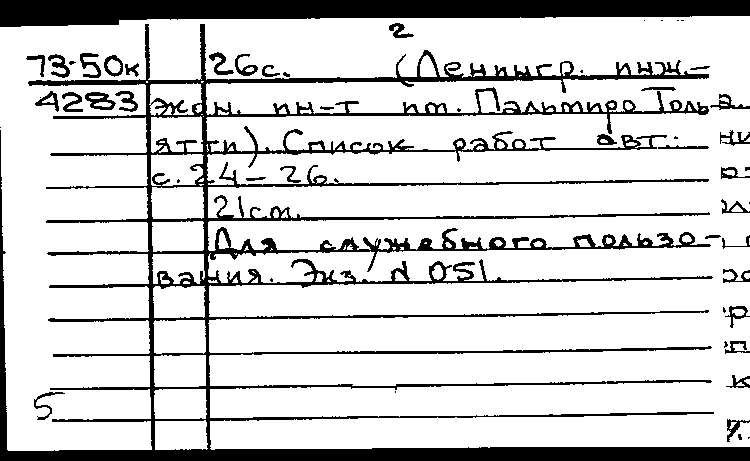 2
73-50к 26с. (Ленингр. инж.-
4283 экон. ин-т им. Пальмиро Толь-
ятти). Список работ авт.:
с. 24-26.
21см.
Для служебного пользо-
вания. Экз. N 051.
5